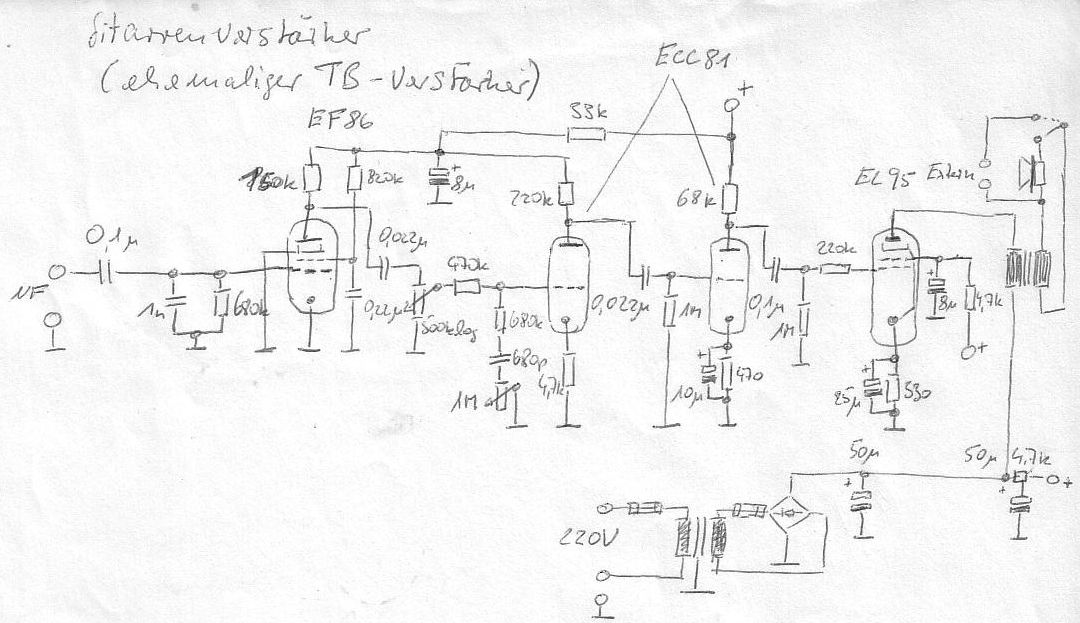 Gitarrenverstärker
(ehemaliger TB-Verstärker)
ECC81
EF86
33k
+
150k
820k
+
8µ
220k
68k
EL95
Extern
0,1µ
0,022µ
220k
NF
1n
680k
0,22µ
470k
500k log
680k
0,022µ
1M
0,1µ
1M
+
8µ
4,7k
+
680p
4,7k
+
10µ
470
+
25µ
530
1M
50µ
50µ
4,7k
+
+
+
220V